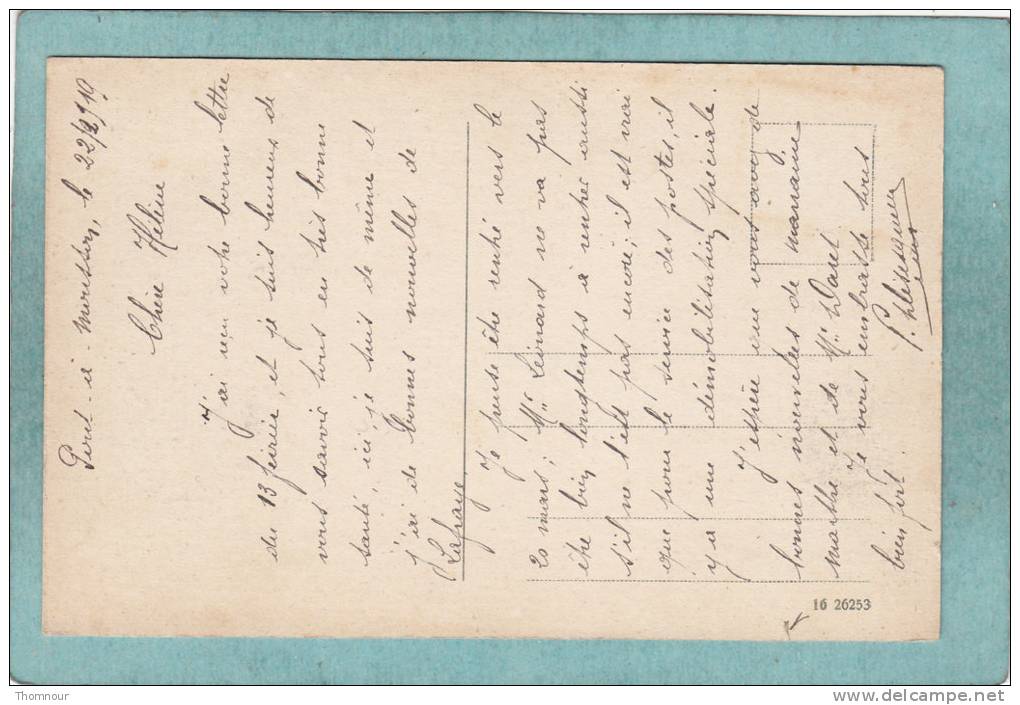 Pont-à-mousson, le 22/2/919
Chère Hélène
J'ai reçu votre bonne lettre
du 13 février, et je suis heureux de
vous savoir tous en très bonne
santé, ici, je suis de même et
j'ai de bonnes nouvelles de
Lafraye
Je pense être rentré vers le
20 mars; Mr Léonard ne va pas
être bien longtemps à rentrer aussi
s'il ne l'est pas encore; il est vrai
que pour le service des postes, il
y a une démobilisation spéciale.
J'espère que vous avez de
bonnes nouvelles de marraine
marthe et de Mr Daret
Je vous embrasse tous
bien fort.
16 26253
Thomnour
www.delcampe.net